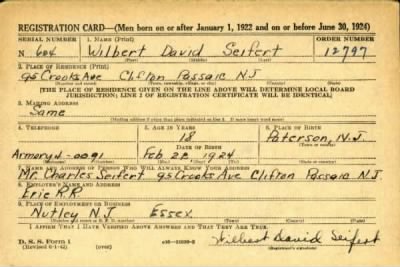 REGISTRATION CARD—(Men born on or after January 1, 1922 and on or before June 30, 1924)
SERIAL NUMBER 1. NAME (Print) ORDER NUMBER
N 604 Wilbert David Seifert 12797
(First) (Middle) (Last)
2. PLACE OF RESIDENCE (Print)
95 Crooks Ave Clifton Passaic N.J
[THE PLACE OF RESIDENCE GIVEN ON THE LINE ABOVE WILL DETERMINE LOCAL BOARD
JURISDICTION; LINE 2 OF REGISTRATION CERTIFICATE WILL BE IDENTICAL]
3. MAILING ADDRESS
Same
[Mailing address if other than place indicated on line 2. If same insert word same]
4. TELEPHONE 5. AGE IN YEARS 6. PLACE OF BIRTH
18 Paterson, N.J.
DATE OF BIRTH
Armory 4-0091 Feb 1924
7. NAME AND ADDRESS OF PERSON WHO WILL ALWAYS KNOW YOUR ADDRESS
Mr. Charles Seifert 95 Crooks Ave Clifton Passaic N.J.
8. EMPLOYER'S NAME AND ADDRESS
Erie R.R.
9. PLACE OF EMPLOYMENT OR BUSINESS
Nutley N.J. Essex
I AFFIRM THAT I HAVE VERIFIED ABOVE ANSWERS AND THAT THEY ARE TRUE.
D. S. S. Form 1
(Revised 6-1-42) (over) Wilbert David Seifert